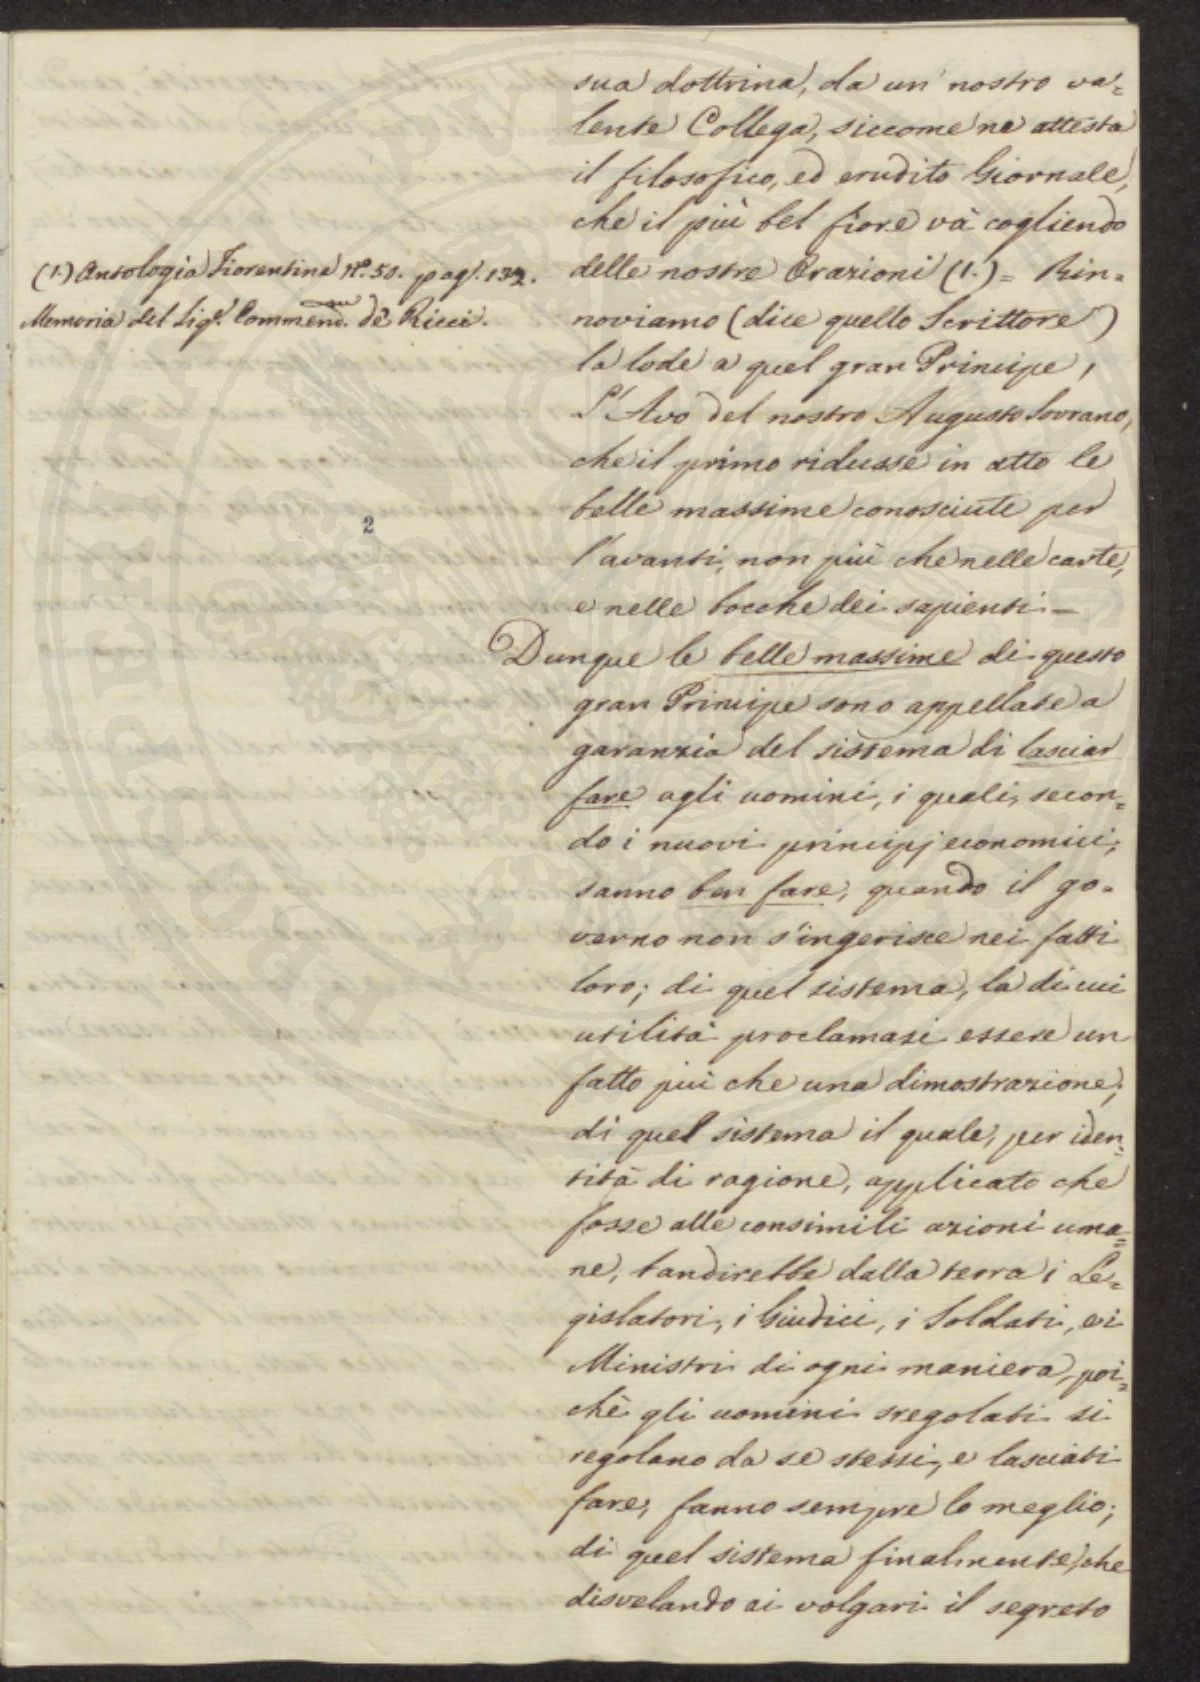 sua dottrina, da un' nostro va=
lente Collega, siccome ne attesta
il filosofico, ed erudito Giornale,
che il più bel fiore và cogliendo
delle nostre Orazioni (1.) = Rin=
noviamo (dice quello Scrittore)
la lode a quel gran Principe,
l'Avo del nostro Augusto Sovrano,
che il primo ridusse in atto le
belle massime conosciute per
l'avanti, non più che nelle carte,
e nelle bocche dei sapienti =
Dunque le belle massime di questo
gran Principe sono appellate a
garanzia del sistema di lasciar
fare agli uomini, i quali, secon=
do i nuovi principj economici,
sanno ben fare, quando il go=
verno non s'ingerisce nei fatti
loro; di quel sistema, la di cui
utilità proclamasi essere un
fatto più che una dimostrazione;
di quel sistema il quale, per iden=
tità di ragione, applicato che
fosse alle consimili azioni uma=
ne, bandirebbe dalla terra i Le=
gislatori, i Giudici, i Soldati, e i
Ministri di ogni maniera, poi=
chè gli uomini sregolati si
regolano da se stessi, e lasciati
fare, fanno sempre lo meglio;
di quel sistema finalmente, che
disvelando ai volgari il segreto
(1.) Antologia Fiorentina Nº. 50. pag. 132.
Memoria del Sigr. Commend. de Ricci.
2